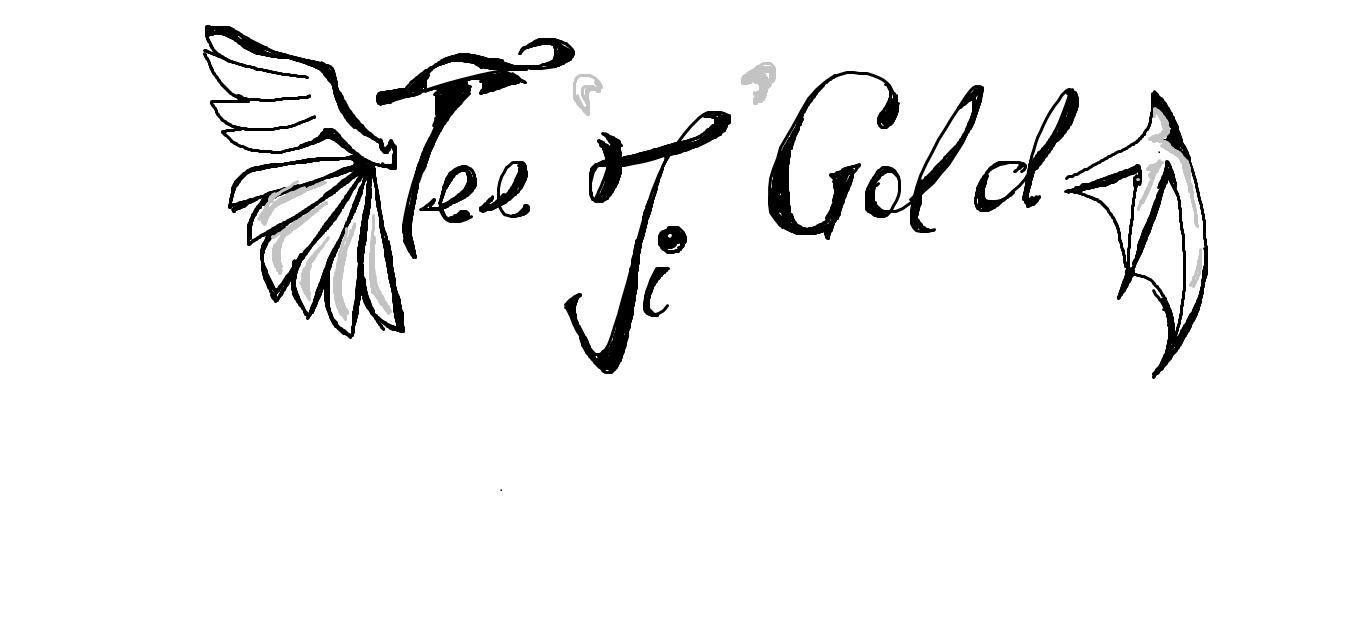 Tee Ji Gold